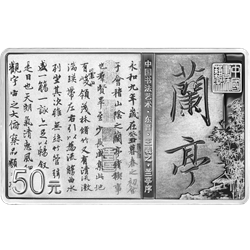 蘭亭
中国书法艺术·东晋·王羲之·兰亭序
永和九年歲在癸丑暮春之初會
于會稽山陰之蘭亭脩稧事
也羣賢畢至少長咸集此地
有崇山峻領茂林脩竹又有清流激
湍暎帶左右引以為流觴曲水
列坐其次雖無絲竹管絃之
盛一觴一詠亦足以暢敘幽情
是日也天朗氣清惠風和暢仰
觀宇宙之大俯察品類
50元